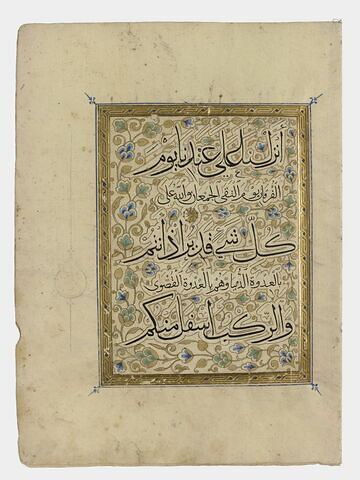 أنزلنا على عبدنا يوم
الفرقان يوم التقى الجمعان والله على
كل شيء قدير إذ أنتم
بالعدوة الدنيا وهم بالعدوة القصوى
والركب أسفل منكم